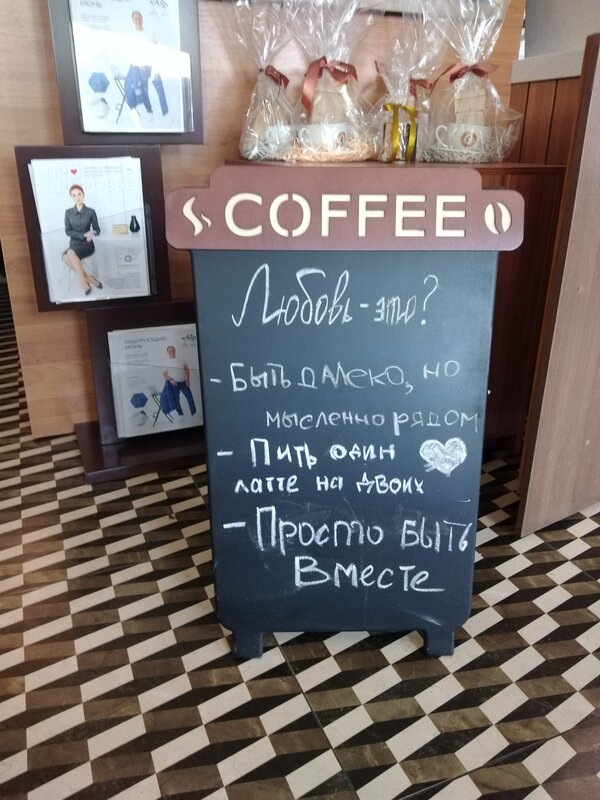 ИЮНЬ
COFFEE
Любовь - это?
- Быть далеко, но
мысленно рядом
- Пить один
латте на двоих
- Просто быть
Вместе
ЛИДИРУЮЩИЙ
ИЮНЬ